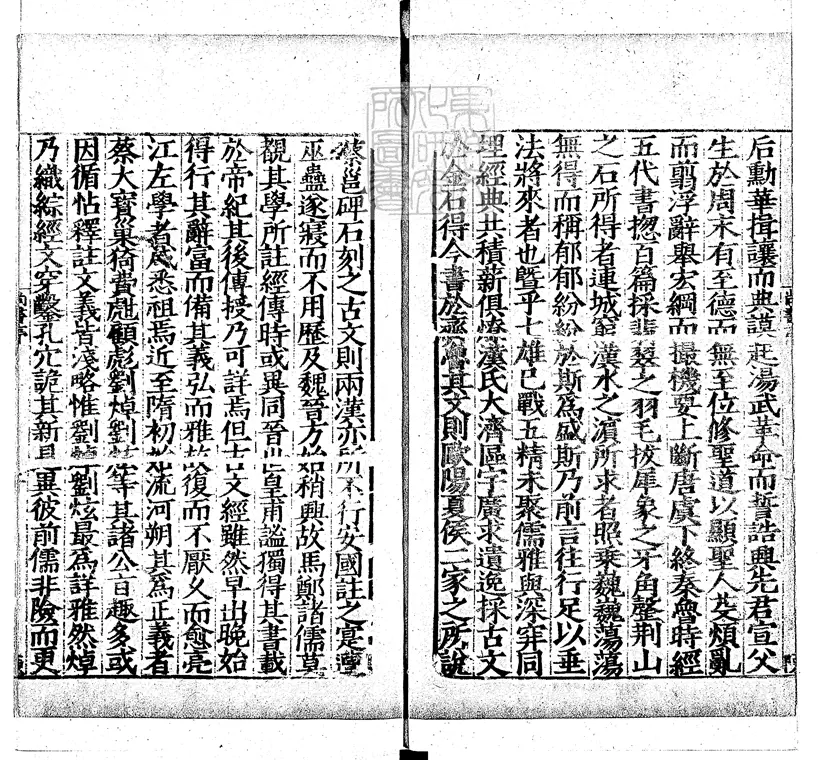 后勳華揖讓而典謨起湯武革命而誓誥興先君宣父
生於周末有至德而無至位修聖道以顯聖人芟煩亂
而翦浮辭舉宏綱而撮機要上斷唐虞下終秦魯時經
五代書揔百篇採翡翠之羽毛拔犀象之牙角罄荊山
之石所得者連城窮漢水之濱所求者照乘巍巍蕩蕩
無得而稱郁郁紛紛於斯為盛斯乃前言往行足以垂
法將來者也暨乎七雄巳戰五精未聚儒雅與深穽同
埋經典共積薪俱燎漢氏大濟區宇廣求遺逸採古文
於金石得今書於齊魯其文則歐陽夏侯二家之所說
蔡邕碑石刻之古文則兩漢亦所不行安國註之寔遭
巫蠱遂寢而不用歷及魏晉方始稍興故馬鄭諸儒莫
覩其學所註經傳時或異同晉世皇甫謐獨得其書載
於帝紀其後傳授乃可詳焉但古文經雖然早出晚始
得行其辭富而備其義弘而雅故復而不厭久而愈亮
江左學者咸悉祖焉近至隋初始流河朔其為正義者
蔡大寶巢猗費甝顧彪劉焯劉炫等其諸公旨趣多或
因循怗釋註文義皆淺略惟劉焯劉炫最為詳雅然焯
乃織綜經文穿鑿孔穴詭其新見異彼前儒非險而更